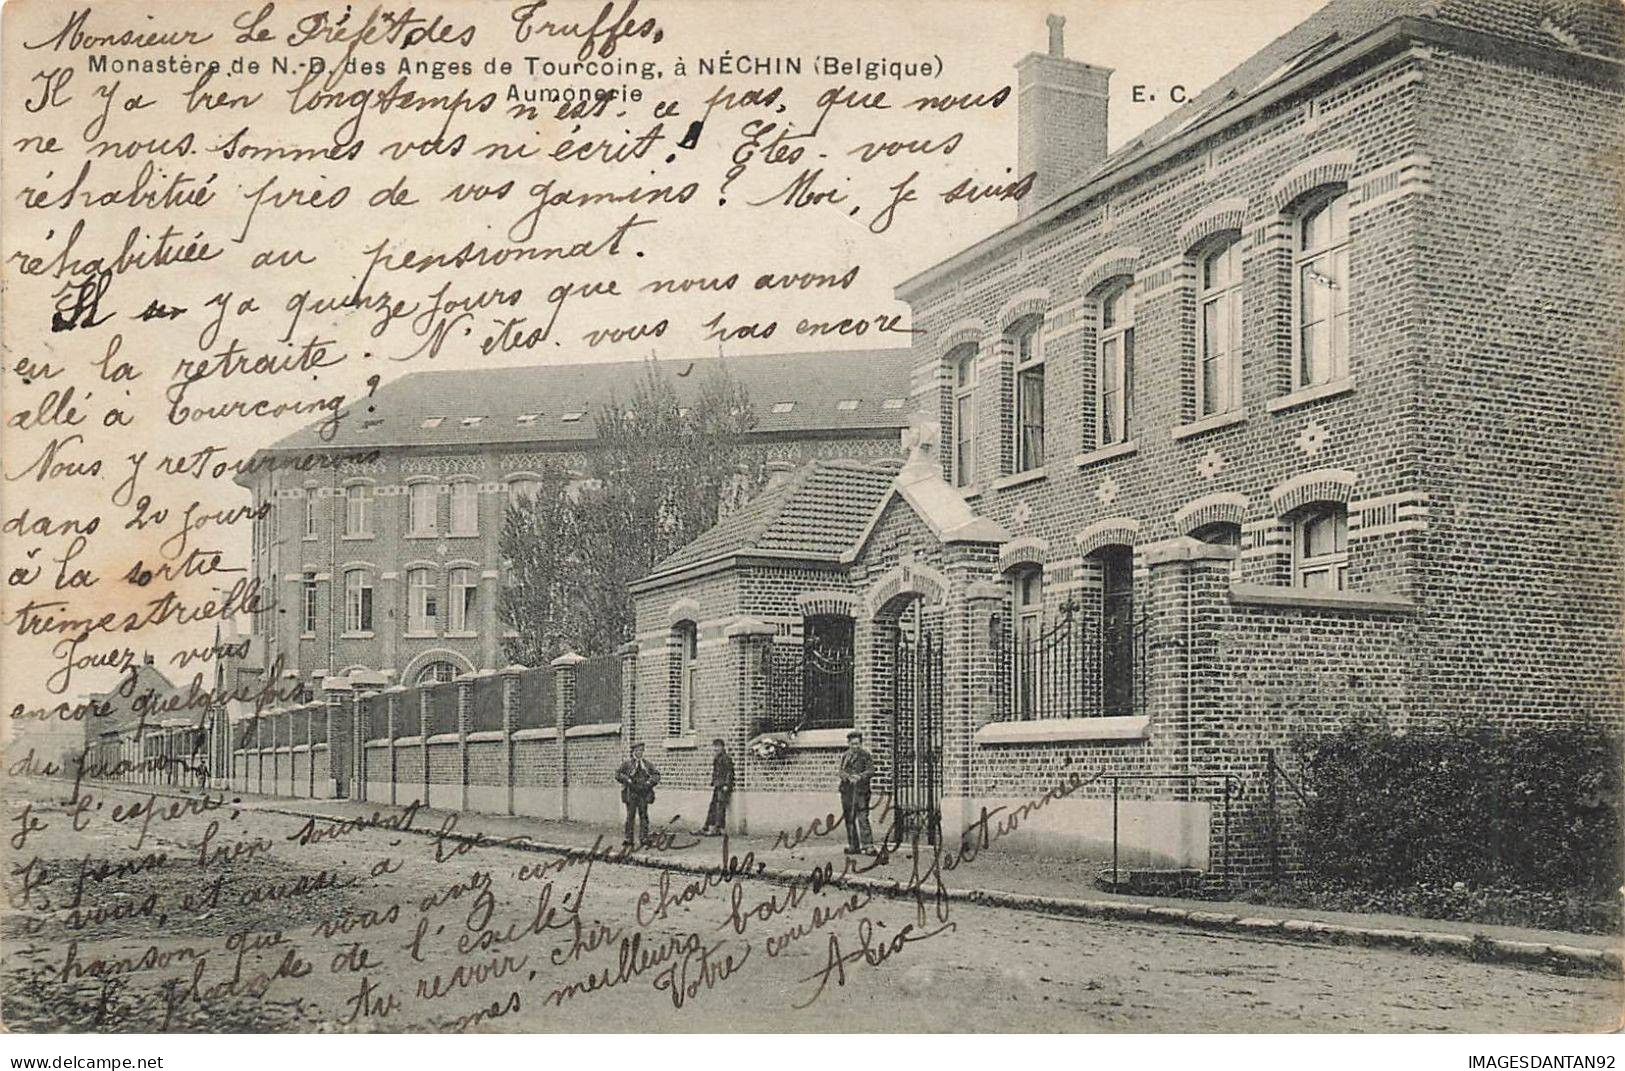 Monsieur Le Préfet, des Truffes,
Monastère de N.-D. des Anges de Tourcoing, à NÉCHIN (Belgique)
Aumonerie
E. C.
Il y a bien longtemps n'est-ce pas, que nous
ne nous sommes vus ni écrit! Etes-vous
réhabitué près de vos gamins? Moi, je suis
réhabituée au pensionnat.
Il y a quinze jours que nous avons
eu la retraite. N'êtes-vous pas encore
allé à Tourcoing?
Nous y retournerons
dans 20 jours
à la sortie
trimestrielle.
Jouez-vous
encore quelquefois
du piano,
je l'espère;
Je pense bien souvent
à vous, et aussi à la
chanson que vous avez composée
la plainte de l'exilé,
Au revoir, cher Charles, recevez
mes meilleurs baisers
Votre cousine affectionnée
Alix
delcampe.net
IMAGESDANTAN92